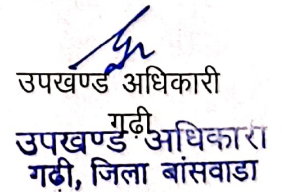 उपखण्ड अधिकारी
गढ़ी
उपखण्ड अधिकारी
गढ़ी, जिला बांसवाडा